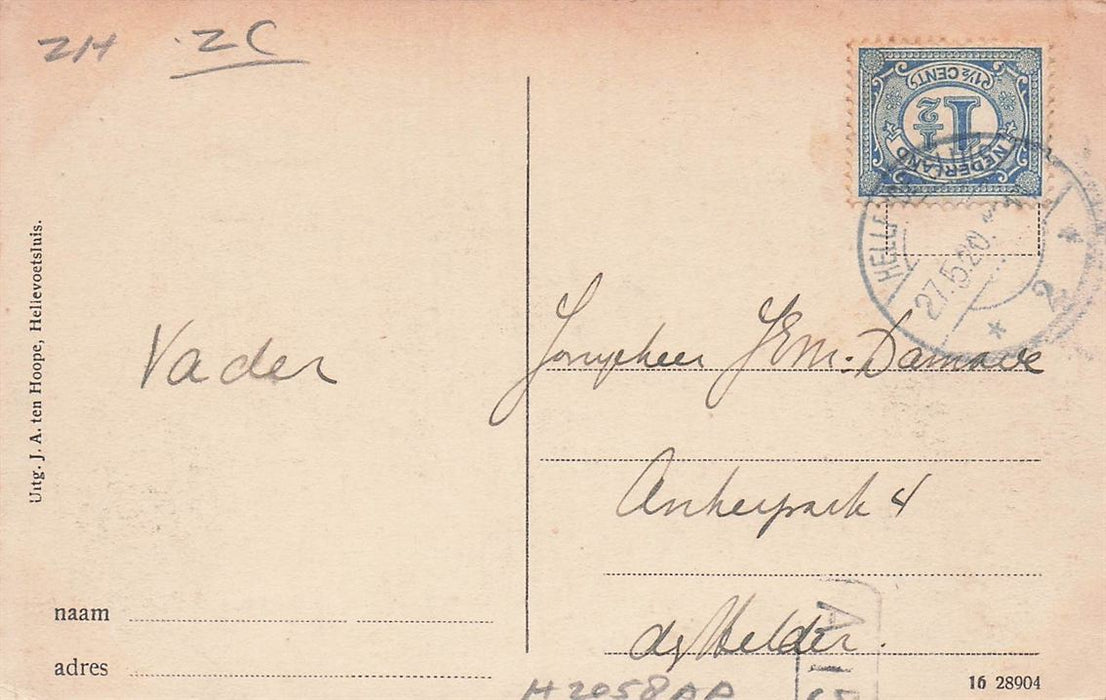 ZH ZC
1½ CENT
1½
NEDERLAND
HELLE
27.5.20
2
Uitg. J. A. ten Hoope, Hellevoetsluis.
Vader
Jongeheer JEM. Damave
Ankerpark 4
d Helder.
naam
adres
16 28904
H2058